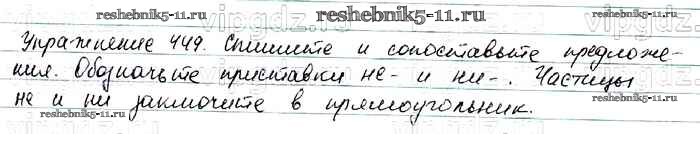 reshebnik5-11.ru
Упражнение 449. Спишите и сопоставьте предложе-
ния. Обозначьте приставки не- и ни-. Частицы
не и ни заключите в прямоугольник.
reshebnik5-11.ru
reshebnik5-11.ru